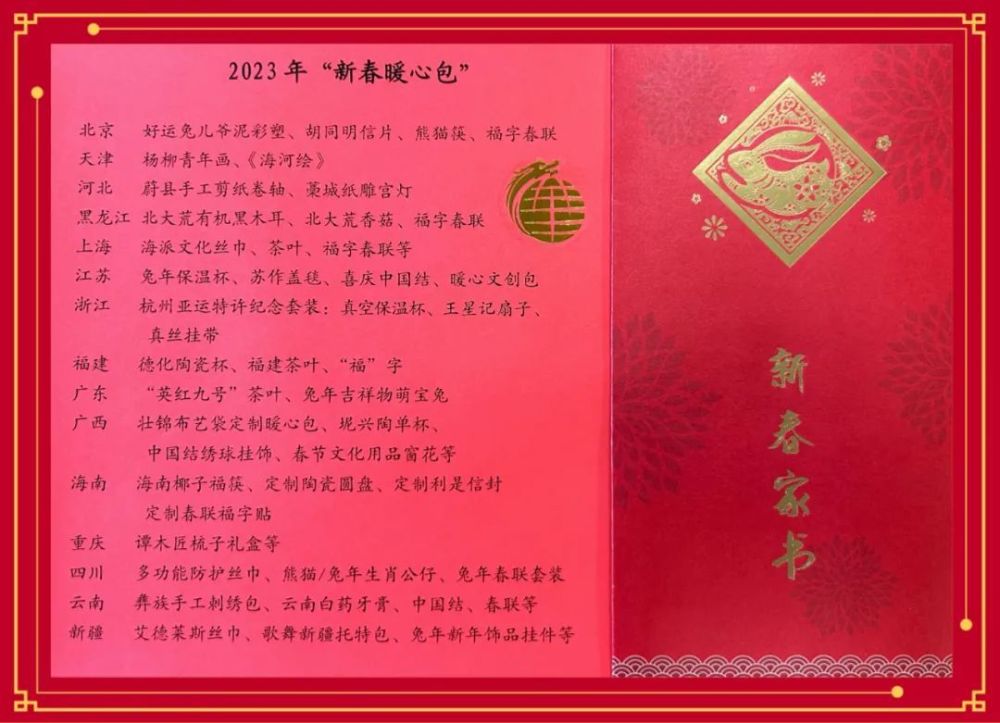 2023年“新春暖心包”
北京 好运兔儿爷泥彩塑、胡同明信片、熊猫筷、福字春联
天津 杨柳青年画、《海河绘》
河北 蔚县手工剪纸卷轴、藁城纸雕宫灯
黑龙江 北大荒有机黑木耳、北大荒香菇、福字春联
上海 海派文化丝巾、茶叶、福字春联等
江苏 兔年保温杯、苏作盖毯、喜庆中国结、暖心文创包
浙江 杭州亚运特许纪念套装：真空保温杯、王星记扇子、
真丝挂带
福建 德化陶瓷杯、福建茶叶、“福”字
广东 “英红九号”茶叶、兔年吉祥物萌宝兔
广西 壮锦布艺袋定制暖心包、坭兴陶单杯、
中国结绣球挂饰、春节文化用品窗花等
海南 海南椰子福筷、定制陶瓷圆盘、定制利是信封
定制春联福字贴
重庆 谭木匠梳子礼盒等
四川 多功能防护丝巾、熊猫/兔年生肖公仔、兔年春联套装
云南 彝族手工刺绣包、云南白药牙膏、中国结、春联等
新疆 艾德莱斯丝巾、歌舞新疆托特包、兔年新年饰品挂件等
新春家书